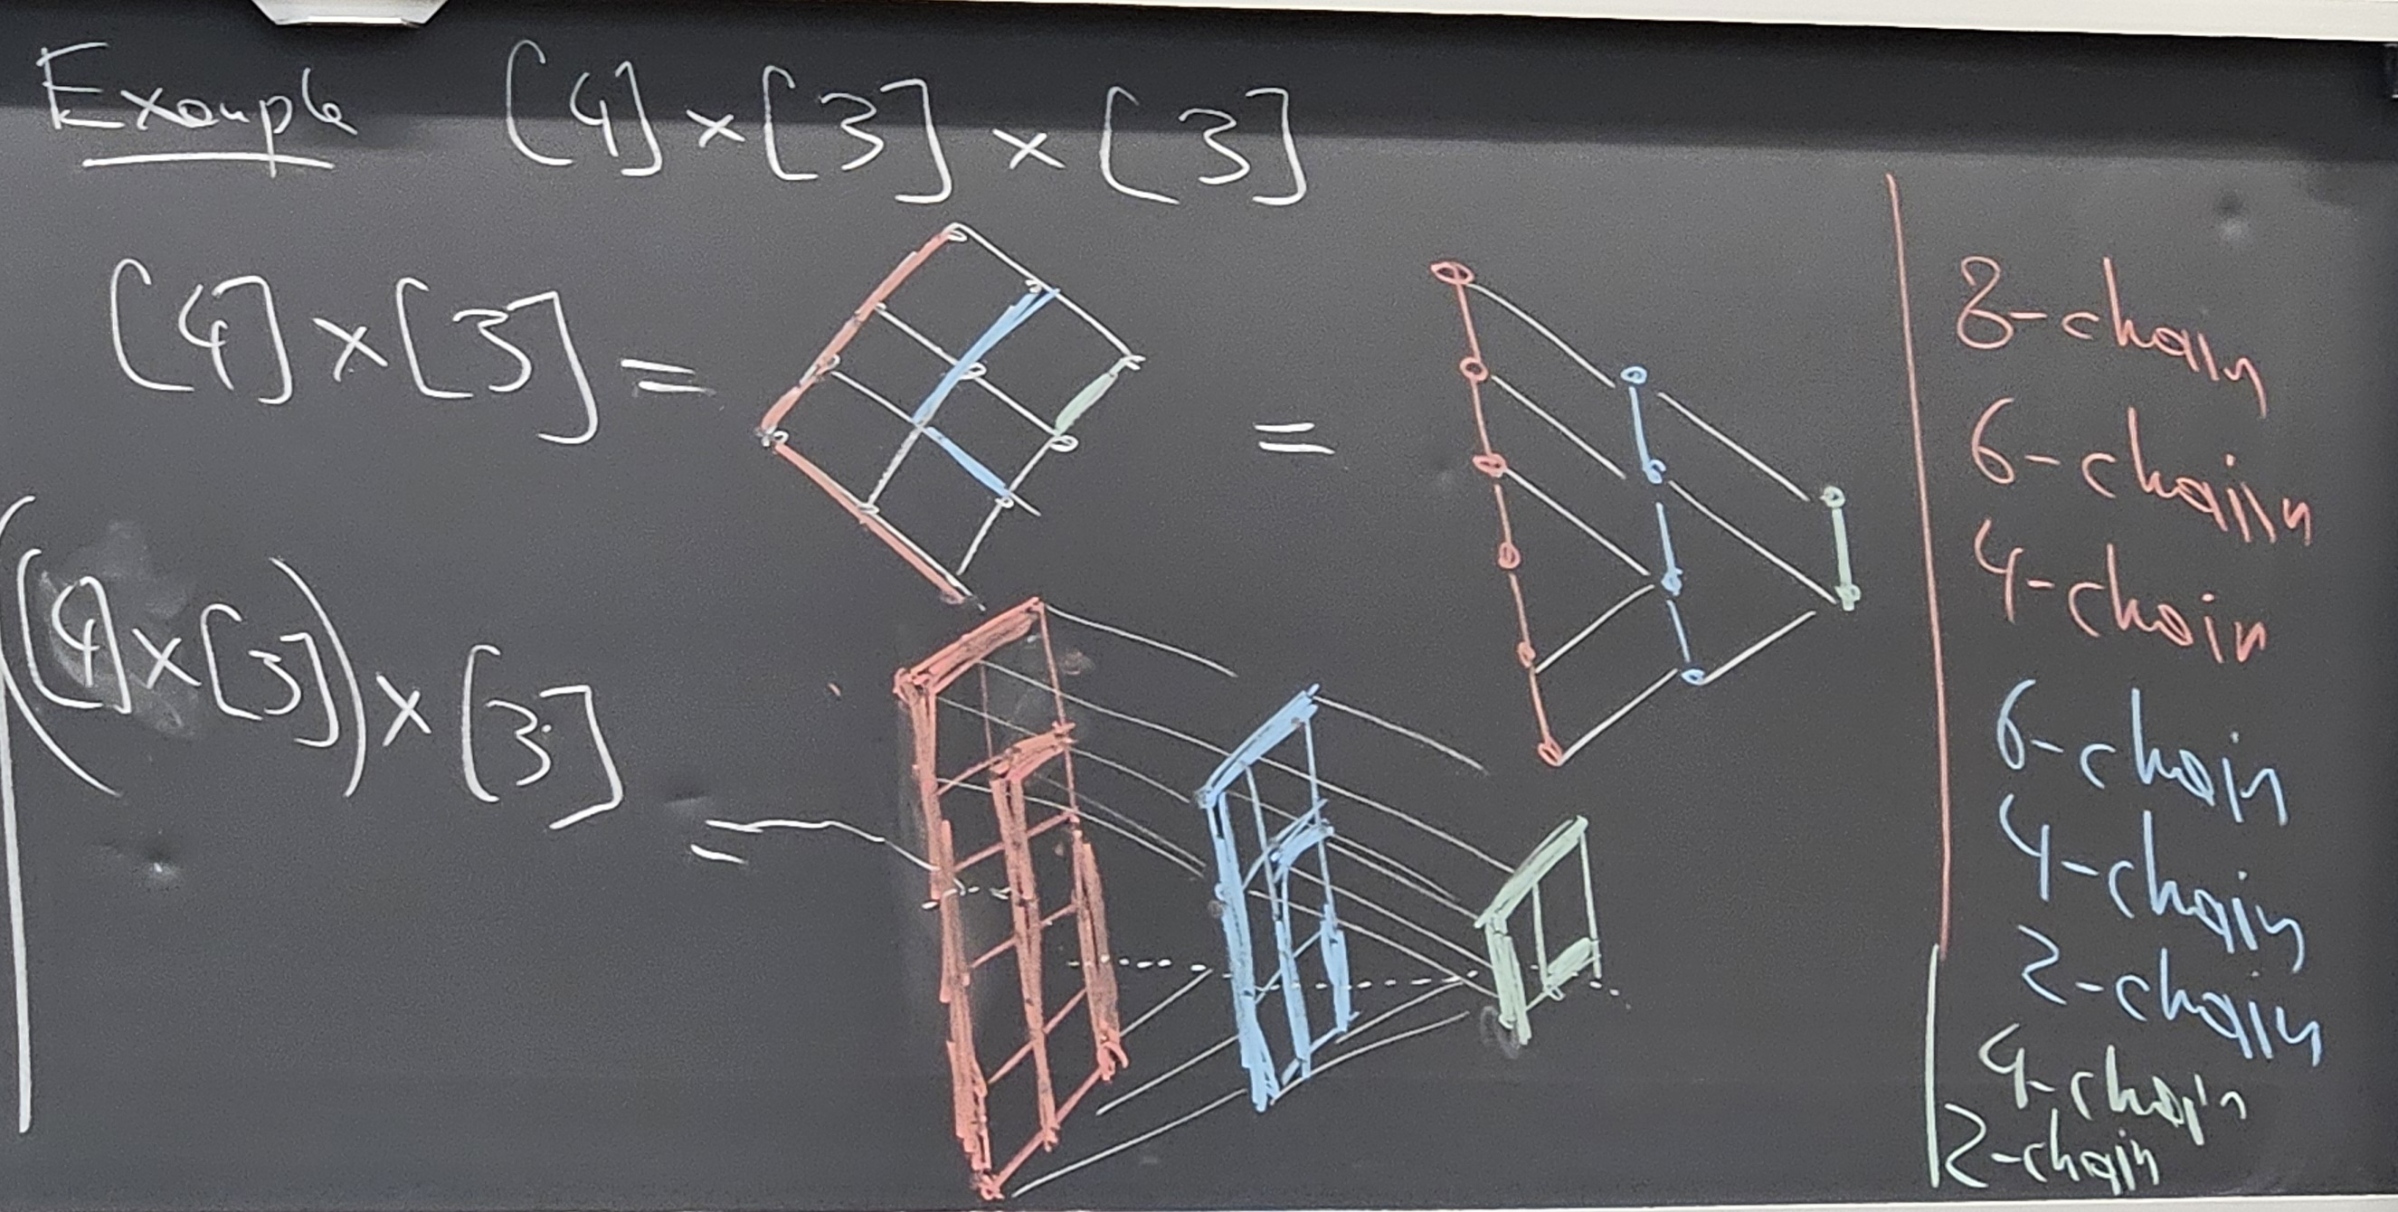 Example [4] × [3] × [3]
[4] × [3] = =
([4] × [3]) × [3]
=
8-chain
6-chain
4-chain
6-chain
4-chain
2-chain
4-chain
2-chain